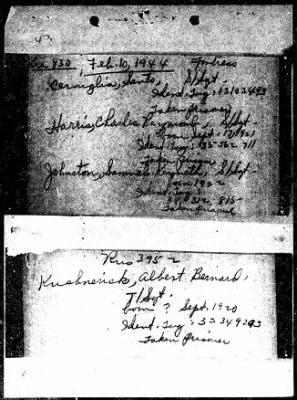 Feb. 10, 1944 Fortress
Cerniglia, Santo, S/Sgt -
Ident. Tag: 13102493
Taken Prisoner
Harris, Charles Raymond, S/Sgt -
born Sept. 17/1921
Ident. Tag:
Taken Prisoner
Johnston, Samuel Kenneth, S/Sgt -
born 1922
Ident. Tag:
815-
Taken Prisoner
Kushnerick, Albert Bernard,
T/Sgt.
born ? Sept. 1920
Ident. Tag: 33349293
Taken Prisoner